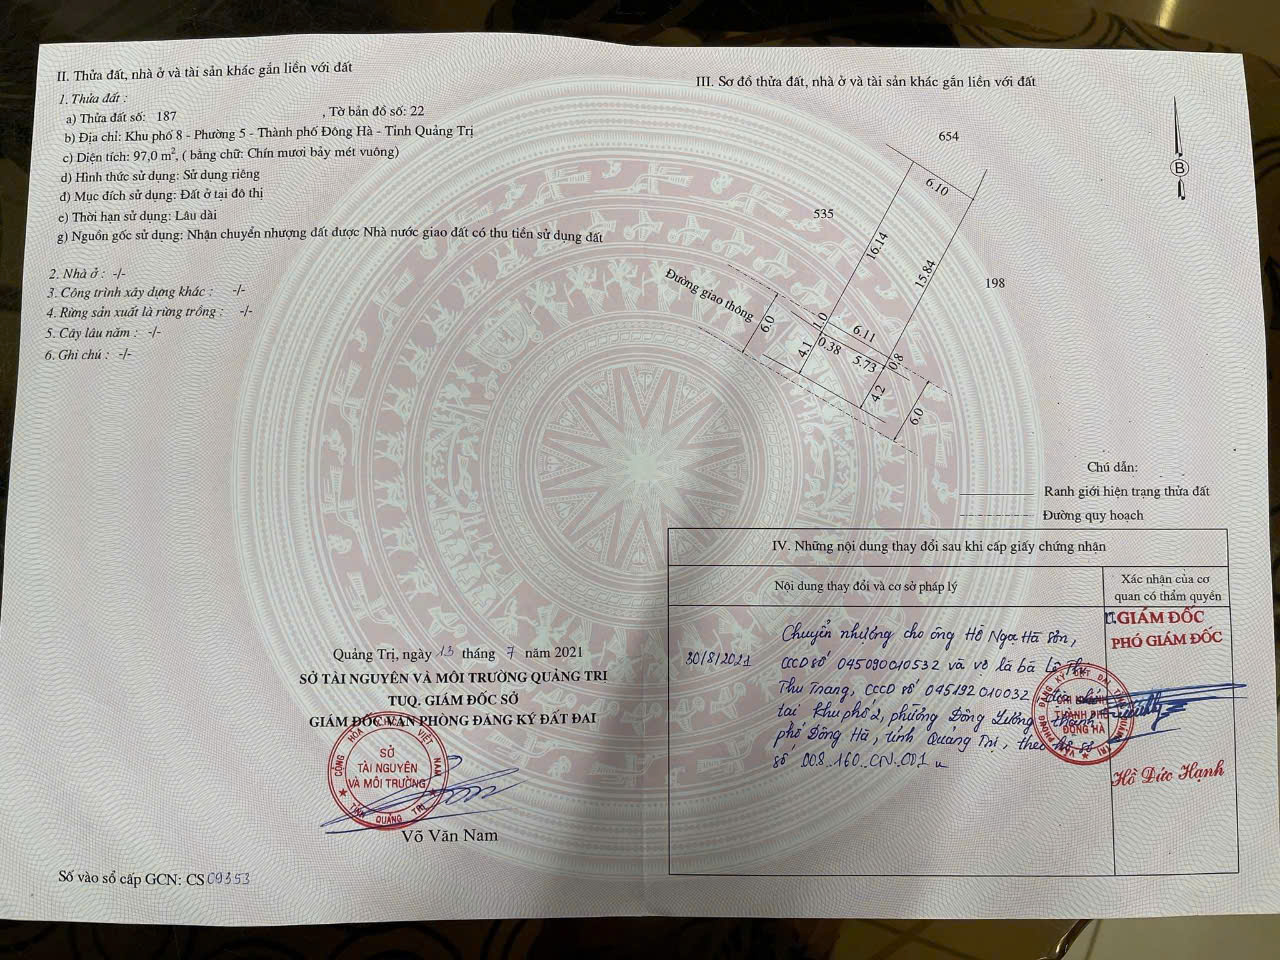 II. Thửa đất, nhà ở và tài sản khác gắn liền với đất
1. Thửa đất :
a) Thửa đất số: 187 , Tờ bản đồ số: 22
b) Địa chỉ: Khu phố 8 - Phường 5 - Thành phố Đông Hà - Tỉnh Quảng Trị
c) Diện tích: 97,0 m², ( bằng chữ: Chín mươi bảy mét vuông)
d) Hình thức sử dụng: Sử dụng riêng
đ) Mục đích sử dụng: Đất ở tại đô thị
e) Thời hạn sử dụng: Lâu dài
g) Nguồn gốc sử dụng: Nhận chuyển nhượng đất được Nhà nước giao đất có thu tiền sử dụng đất
2. Nhà ở : -/-
3. Công trình xây dựng khác : -/-
4. Rừng sản xuất là rừng trồng : -/-
5. Cây lâu năm : -/-
6. Ghi chú : -/-
Quảng Trị, ngày 13 tháng 7 năm 2021
SỞ TÀI NGUYÊN VÀ MÔI TRƯỜNG QUẢNG TRỊ
TUQ. GIÁM ĐỐC SỞ
GIÁM ĐỐC VĂN PHÒNG ĐĂNG KÝ ĐẤT ĐAI
CỘNG HÒA XÃ HỘI CHỦ NGHĨA VIỆT NAM
SỞ
TÀI NGUYÊN
VÀ MÔI TRƯỜNG
TỈNH QUẢNG TRỊ
Võ Văn Nam
Số vào sổ cấp GCN: CS 09353
III. Sơ đồ thửa đất, nhà ở và tài sản khác gắn liền với đất
654
B
6.10
535
16.14
15.84
198
Đường giao thông
6.0
1.0
6.11
4.1
0.38
5.73
0.8
4.2
6.0
Chú dẫn:
Ranh giới hiện trạng thửa đất
Đường quy hoạch
IV. Những nội dung thay đổi sau khi cấp giấy chứng nhận
Nội dung thay đổi và cơ sở pháp lý
Xác nhận của cơ
quan có thẩm quyền
30/8/2021
Chuyển nhượng cho ông Hồ Ngọc Hà Sơn,
CCCD số 045090010532 và vợ là bà Lê Thị
Thu Trang, CCCD số 045192010032
tại Khu phố 2, phường Đông Lương, thành
phố Đông Hà, tỉnh Quảng Trị, theo hồ sơ
số 008.160.CN.001
GIÁM ĐỐC
PHÓ GIÁM ĐỐC
CHI NHÁNH
THÀNH PHỐ
ĐÔNG HÀ
Hồ Đức Hạnh